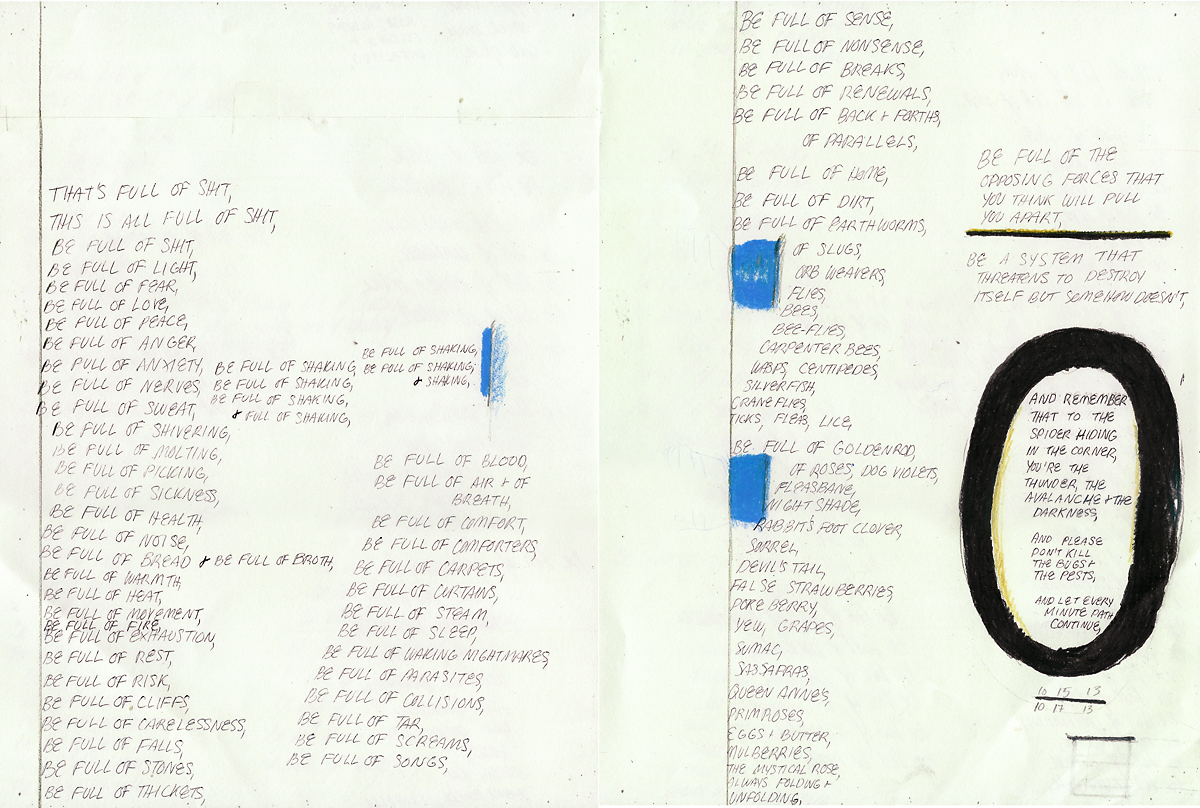 THAT'S FULL OF SHIT,
THIS IS ALL FULL OF SHIT,
BE FULL OF SHIT,
BE FULL OF LIGHT,
BE FULL OF FEAR,
BE FULL OF LOVE,
BE FULL OF PEACE,
BE FULL OF ANGER,
BE FULL OF ANXIETY,
BE FULL OF NERVES,
BE FULL OF SWEAT,
BE FULL OF SHAKING,
BE FULL OF SHAKING,
BE FULL OF SHAKING,
& FULL OF SHAKING,
BE FULL OF SHAKING,
BE FULL OF SHAKING,
& SHAKING,
BE FULL OF SHIVERING,
BE FULL OF MOLTING,
BE FULL OF PICKING,
BE FULL OF SICKNESS,
BE FULL OF HEALTH,
BE FULL OF NOISE,
BE FULL OF BREAD & BE FULL OF BROTH,
BE FULL OF WARMTH,
BE FULL OF HEAT,
BE FULL OF MOVEMENT,
BE FULL OF FIRE,
BE FULL OF EXHAUSTION,
BE FULL OF REST,
BE FULL OF RISK,
BE FULL OF CLIFFS,
BE FULL OF CARELESSNESS,
BE FULL OF FALLS,
BE FULL OF STONES,
BE FULL OF THICKETS,
BE FULL OF BLOOD,
BE FULL OF AIR & OF
BREATH,
BE FULL OF COMFORT,
BE FULL OF COMFORTERS,
BE FULL OF CARPETS,
BE FULL OF CURTAINS,
BE FULL OF STEAM,
BE FULL OF SLEEP,
BE FULL OF WAKING NIGHTMARES,
BE FULL OF PARASITES,
BE FULL OF COLLISIONS,
BE FULL OF TAR,
BE FULL OF SCREAMS,
BE FULL OF SONGS,
BE FULL OF SENSE,
BE FULL OF NONSENSE,
BE FULL OF BREAKS,
BE FULL OF RENEWALS,
BE FULL OF BACK & FORTHS,
OF PARALLELS,
BE FULL OF HOME,
BE FULL OF DIRT,
BE FULL OF EARTHWORMS,
OF SLUGS,
ORB WEAVERS,
FLIES,
BEES,
BEE-FLIES,
CARPENTER BEES,
WASPS, CENTIPEDES,
SILVERFISH,
CRANEFLIES,
TICKS, FLEAS, LICE,
BE FULL OF GOLDENROD,
OF ROSES, DOG VIOLETS,
FLEASBANE,
NIGHTSHADE,
RABBIT'S FOOT CLOVER,
SORREL,
DEVIL'S TAIL,
FALSE STRAWBERRIES,
POKE BERRY,
YEW, GRAPES,
SUMAC,
SASSAFRAS,
QUEEN ANNE'S,
PRIMROSES,
EGGS & BUTTER,
MULBERRIES,
THE MYSTICAL ROSE,
ALWAYS FOLDING &
UNFOLDING,
BE FULL OF THE
OPPOSING FORCES THAT
YOU THINK WILL PULL
YOU APART,
BE A SYSTEM THAT
THREATENS TO DESTROY
ITSELF BUT SOMEHOW DOESN'T,
AND REMEMBER
THAT TO THE
SPIDER HIDING
IN THE CORNER,
YOU'RE THE
THUNDER, THE
AVALANCHE & THE
DARKNESS,
AND PLEASE
DON'T KILL
THE BUGS &
THE PESTS,
AND LET EVERY
MINUTE PATH
CONTINUE,
10 15 13
10 17 13